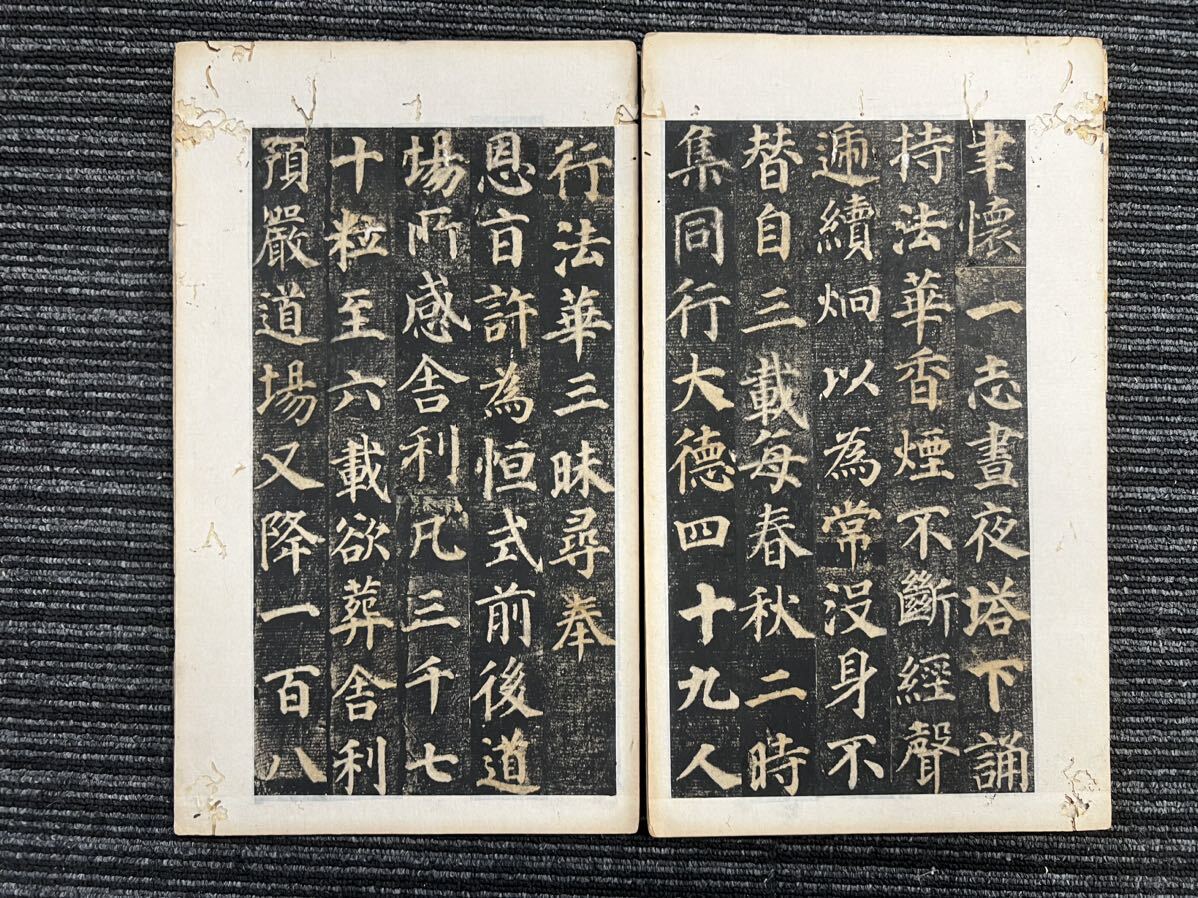 聿懷一志晝夜塔下誦
持法華香煙不斷經聲
遞續炯以為常没身不
替自三載每春秋二時
集同行大德四十九人
行法華三昧尋奉
恩旨許為恒式前後道
場所感舍利凡三千七
十粒至六載欲葬舍利
預嚴道場又降一百八